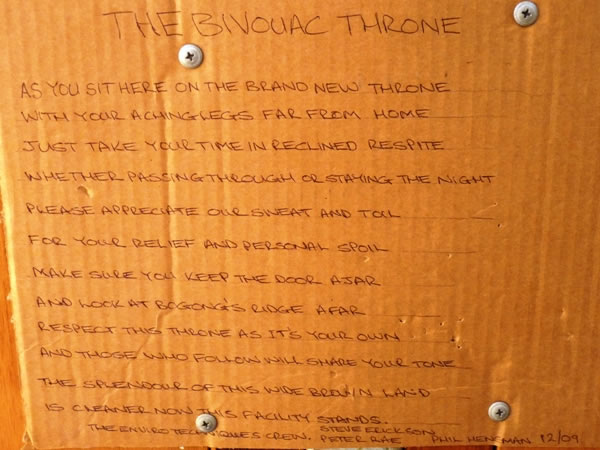 THE BIVOUAC THRONE
AS YOU SIT HERE ON THE BRAND NEW THRONE
WITH YOUR ACHING LEGS FAR FROM HOME
JUST TAKE YOUR TIME IN RECLINED RESPITE
WHETHER PASSING THROUGH OR STAYING THE NIGHT
PLEASE APPRECIATE OUR SWEAT AND TOIL
FOR YOUR RELIEF AND PERSONAL SPOIL
MAKE SURE YOU KEEP THE DOOR AJAR
AND LOOK AT BOGONG'S RIDGE AFAR
RESPECT THIS THRONE AS IT'S YOUR OWN
AND THOSE WHO FOLLOW WILL SHARE YOUR TONE
THE SPLENDOUR OF THIS WIDE BROWN LAND
IS CLEANER NOW THIS FACILITY STANDS.
THE ENVIRO TECHNIQUES CREW. STEVE ERICKSON
PETER RAE PHIL HENGMAN 12/09